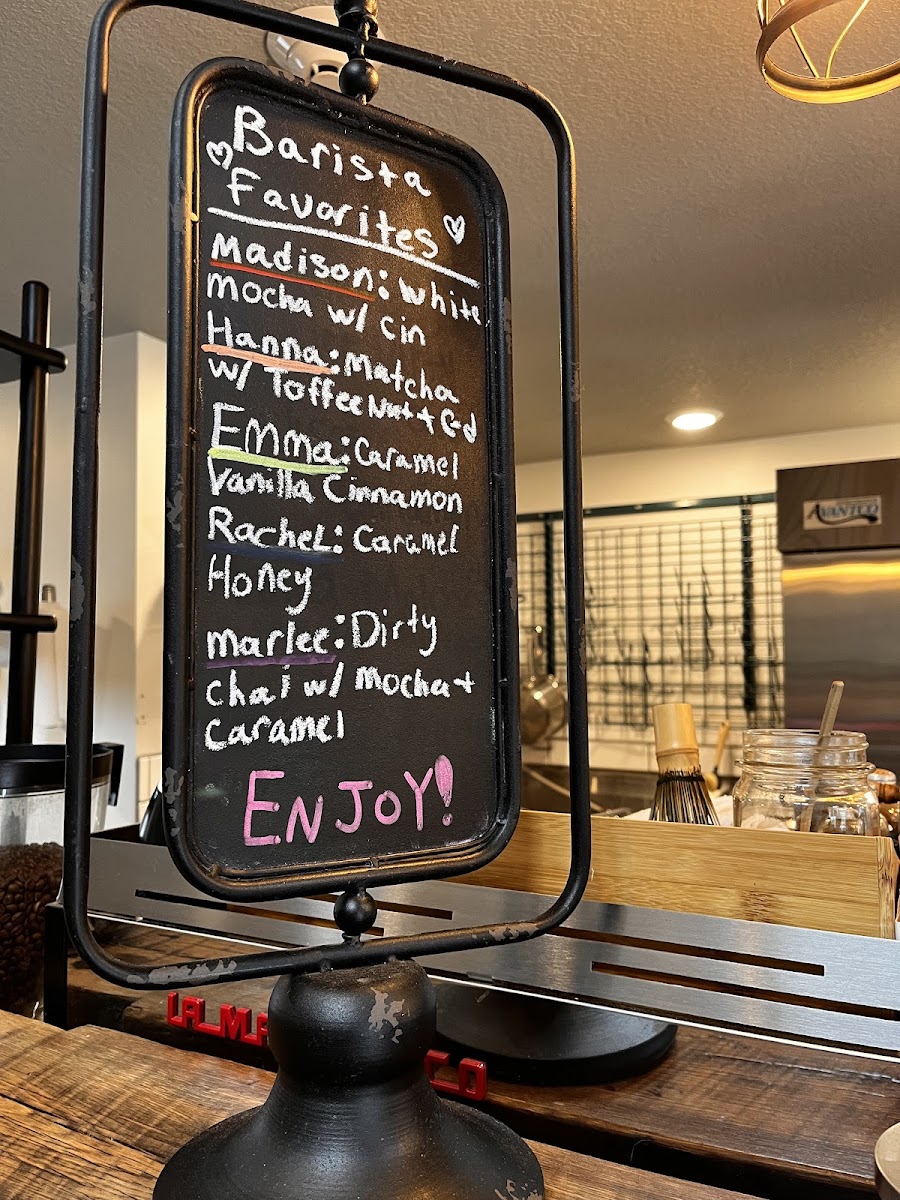 Barista
Favorites
Madison: White
Mocha w/ Cin
Hanna: Matcha
w/ Toffee Nut +
Emma: Caramel
Vanilla Cinnamon
Rachel: Caramel
Honey
Marlee: Dirty
Chai w/ Mocha +
Caramel
ENJOY!
AVANTCO
LA MA
CO